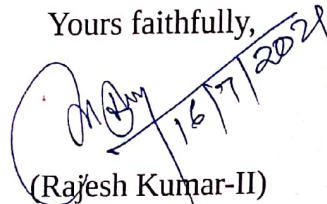 Yours faithfully,
16/7/2021
(Rajesh Kumar-II)